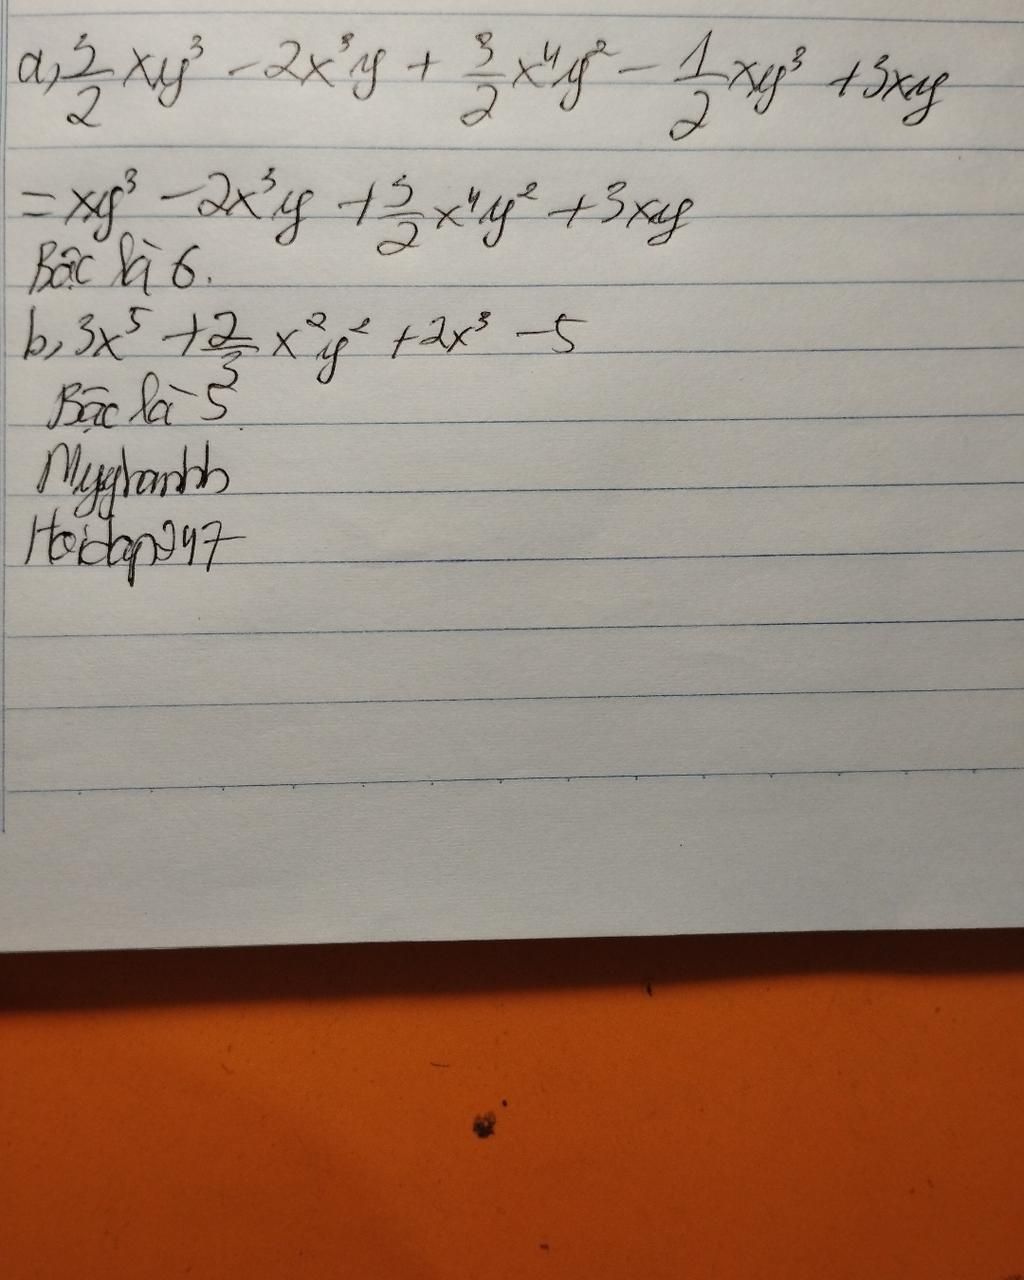 a, 3/2 xy³ - 2x³y + 3/2 x⁴y² - 1/2 xy³ + 3xy
= xy³ - 2x³y + 3/2 x⁴y² + 3xy
Bậc là 6.
b, 3x⁵ + 2/3 x²y² + 2x³ - 5
Bậc là 5
Hoidap247